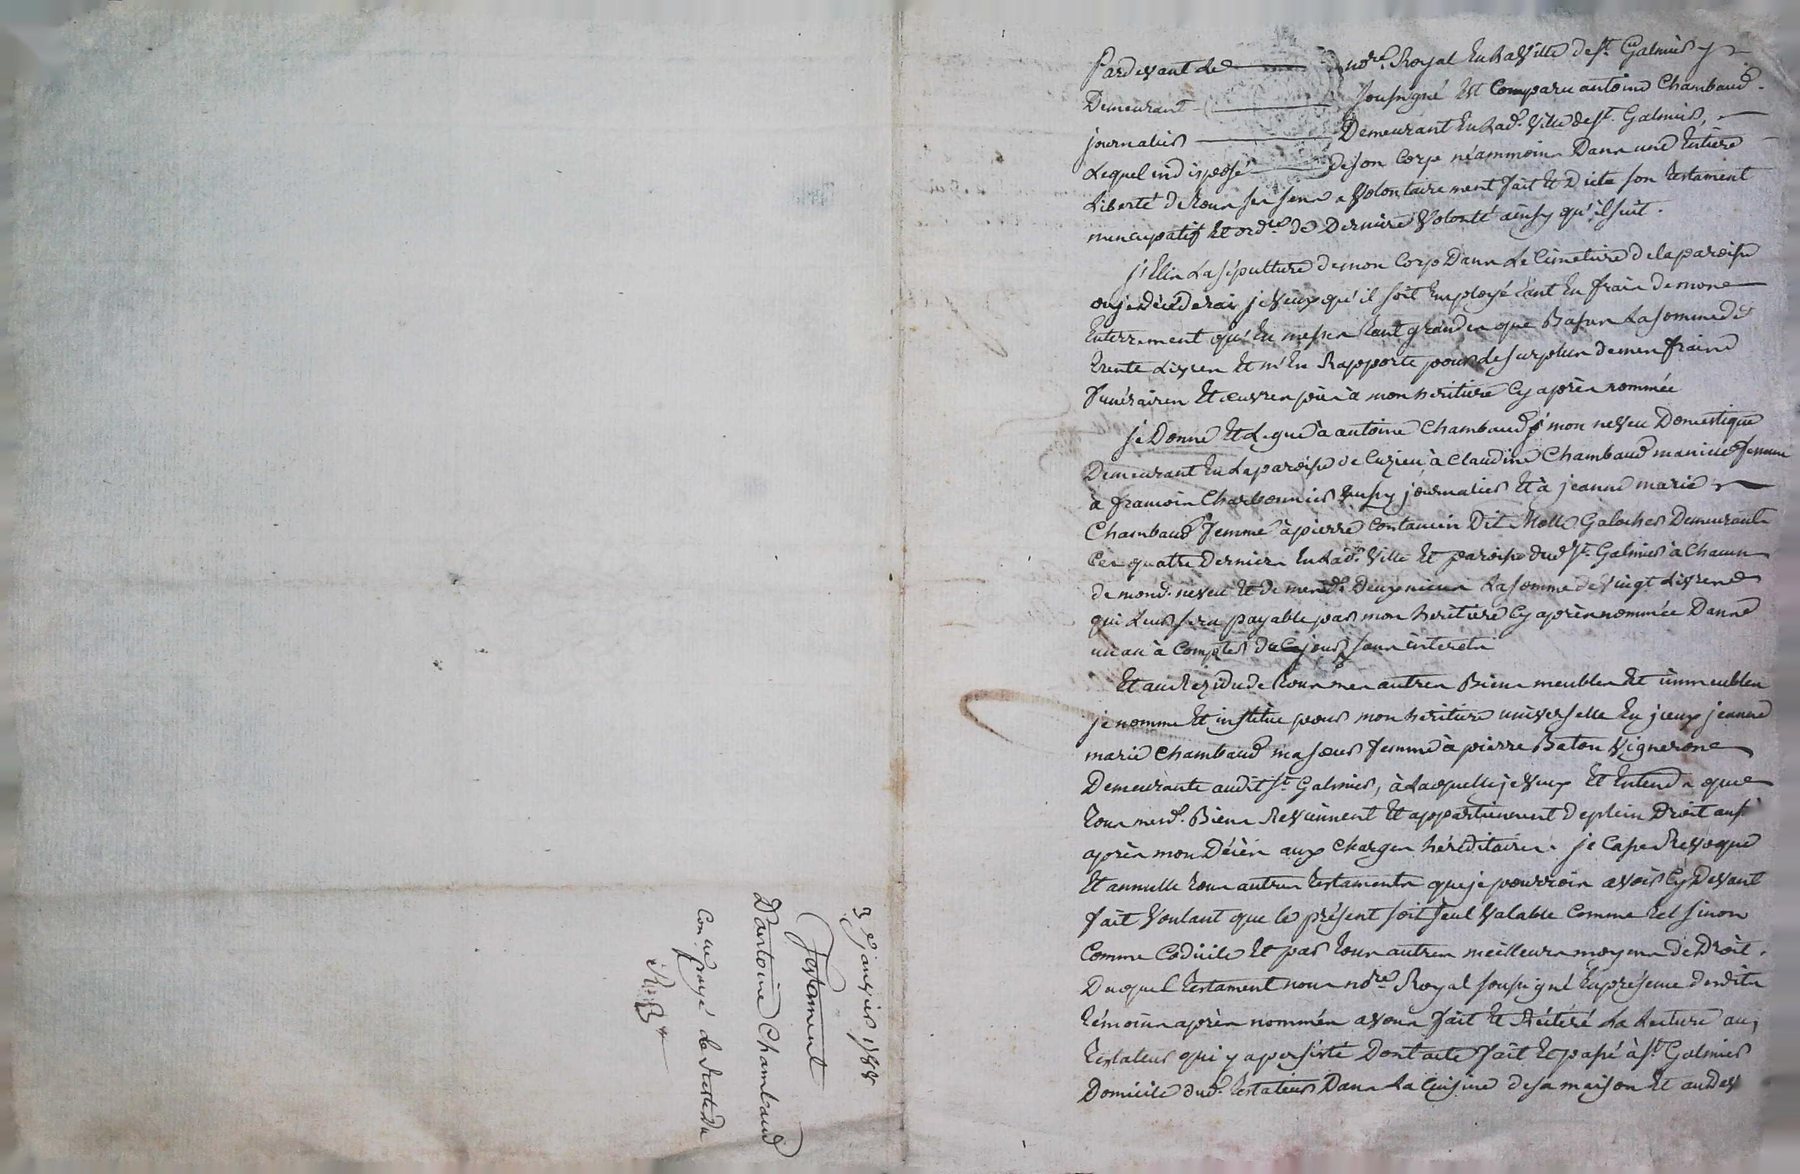 Pardevant Le notre Royal En La Ville de St Galmier
Demeurant soussigné Est Comparu antoine Chambaud
journalier Demeurant En Lad. Ville de St. Galmier,
Lequel indisposé de son Corps néammoins Dans une Entiere
Liberté de tous ses sens a Volontairement fait Et Dicté son testament
nuncupatif Et ordre de Derniere Volonté ainsy qu'il suit.
j'Elis La sépulture de mon Corps Dans Le Cimetiere de la paroisse
ou je décéderai je Veux qu'il soit Employé tant En frais de mon
Enterrement qu'En messes tant grandes que Basses La somme de
trente Livres Et m'En Rapporte pour Le surplus de mes frais
funéraires Et œuvres pies à mon heritiere Cy après nommée
je Donne Et Legue à antoine Chambaud mon neveu Domestique
Demeurant En La paroisse de Cuzieu à Claudine Chambaud ma niece femme
à francois Charbonnier aussy journalier Et à jeanne marie
Chambaud femme à pierre Contamin Dit Galocher Demeurants
Ces quatre Derniers En Lad. Ville Et paroisse dud St. Galmier à Chacun
de mond. neveu Et de mesd. Deux nieces La somme de Vingt Livres
qui Leur sera payable par mon heritiere Cy après nommée Dans
un an à Compter de Ce jour sans interets
Et au Rezidu de tous mes autres Biens meubles Et immeubles
je nomme Et institue pour mon heritiere universelle En jceux jeanne
marie Chambaud ma sœur femme à pierre Baton Vigneron
Demeurante audit St Galmier, à Laquelle je Veux Et Entends que
tous mesd. Biens Reviennent Et appartiennent de plein Droit
après mon Décès aux Charges héréditaires. je Casse Revoque
Et annulle tous autres testaments que je pourrois avoir Cy Devant
fait Voulant que le présent soit seul Valable Comme tel sinon
Comme Codicile Et par tous autres meilleurs moyens de Droit.
Duquel testament nous notre Royal soussigné En présence desdits
témoins après nommés avons fait Et Réiteré La Lecture au
testateur qui y a persisté Dont acte fait Et passé à St Galmier
Domicile dud. testateur Dans La Cuisine de sa maison Et au dev
3e janvier 1788
Testament
D'antoine Chambaud